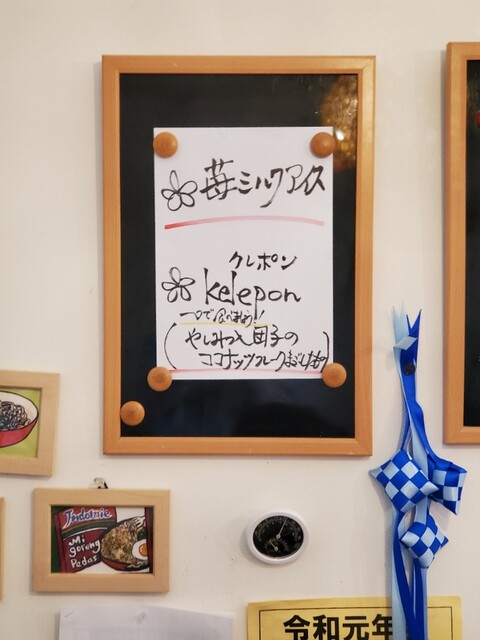 苺ミルクアイス
クレポン
kelepon
一口で食べましょう!!
(やしみつ入団子の
ココナッツフレークまぶしたもの)
Indomie
Mi
goreng
Pedas
令和元年